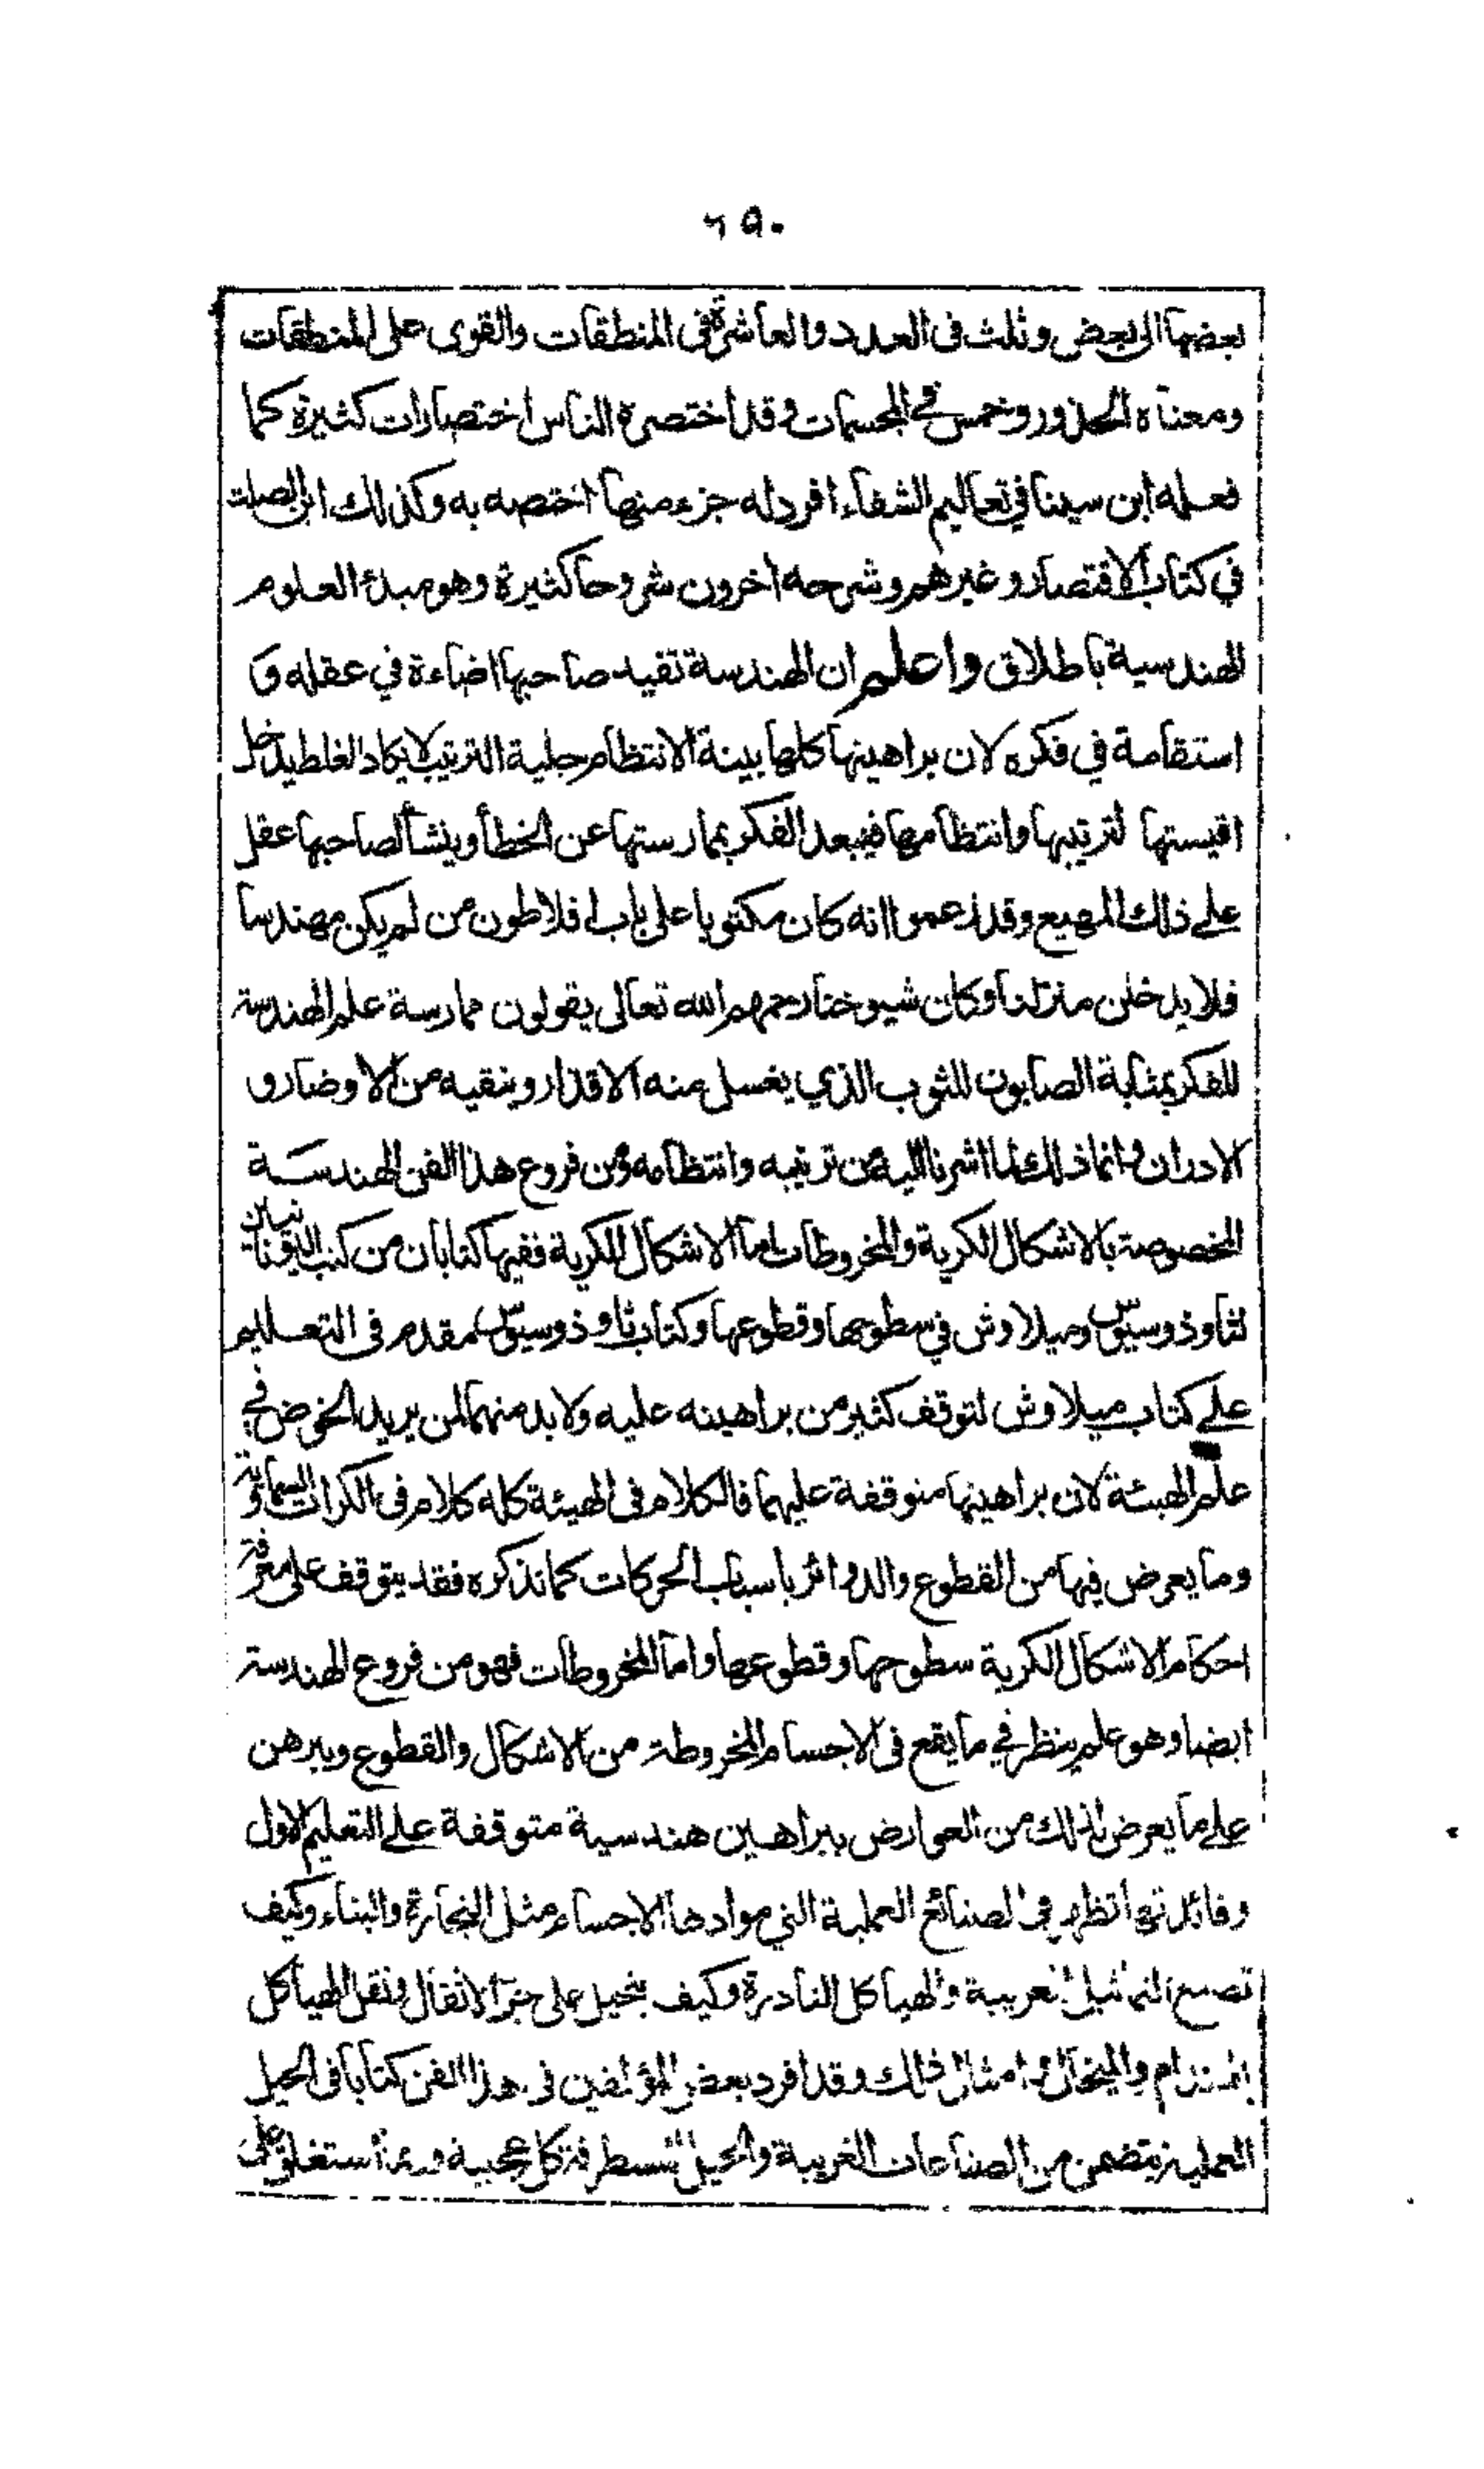 ٦٥٠
بعضها الى بعض وثلث فى العدد والعاشرة فى المنطقات والقوى على المنطقات
ومعناه الجذور وخمس فى المجسمات وقد اختصره الناس اختصارات كثيرة كما
فعله ابن سينا في تعاليم الشفاء افرد له جزء منها اختصه به وكذلك ابن الصلت
في كتاب الاقتصار وغيرهم وشرحه اخرون شروحا كثيرة وهو مبدء العلوم
الهندسية باطلاق واعلم ان الهندسة تفيد صاحبها اضاءة في عقله و
استقامة في فكره لان براهينها كلها بينة الانتظام جلية الترتيب لا يكاد الغلط يدخل
اقيستها لترتيبها وانتظامها فيبعد الفكر بممارستها عن الخطأ وينشأ لصاحبها عقل
على ذلك المهيع وقد زعموا انه كان مكتوبا على باب افلاطون من لم يكن مهندسا
فلا يدخلن منزلنا وكان شيوخنا رحمهم الله تعالى يقولون ممارسة علم الهندسة
للفكر بمثابة الصابون للثوب الذي يغسل منه الاقذار وينقيه من الاوضار و
الادران وانما ذلك لما اشرنا اليه من ترتيبه وانتظامه ومن فروع هذا الفن الهندسة
المخصوصة بالاشكال الكرية والمخروطات اما الاشكال الكرية ففيها كتابان من كتب اليونانيين
لثاوذوسيوس وميلاوش في سطوحها وقطوعها وكتاب ثاوذوسيوس مقدم فى التعليم
على كتاب ميلاوش لتوقف كثير من براهينه عليه ولا بد منهما لمن يريد الخوض في
علم الهيئة لان براهينها متوقفة عليهما فالكلام فى الهيئة كله كلام فى الكرات السماوية
وما يعرض فيها من القطوع والدوائر باسباب الحركات كما نذكره فقد يتوقف على معرفة
احكام الاشكال الكرية سطوحها وقطوعها واما المخروطات فهو من فروع الهندسة
ايضا وهو علم ينظر في ما يقع فى الاجسام المخروطة من الاشكال والقطوع ويبرهن
على ما يعرض لذلك من العوارض ببراهين هندسية متوقفة على التعليم الاول
وفائدتها تظهر فى الصنائع العملية التي موادها الاجسام مثل النجارة والبناء وكيف
تصنع التماثيل الغريبة والهياكل النادرة وكيف يتحيل على جر الاثقال ونقل الهياكل
بالهندام والميخال وامثال ذلك وقد افرد بعض المؤلفين فى هذا الفن كتابا فى الحيل
العملية يتضمن من الصناعات الغريبة والحيل المستطرفة كل عجيبة وربما استغلق على